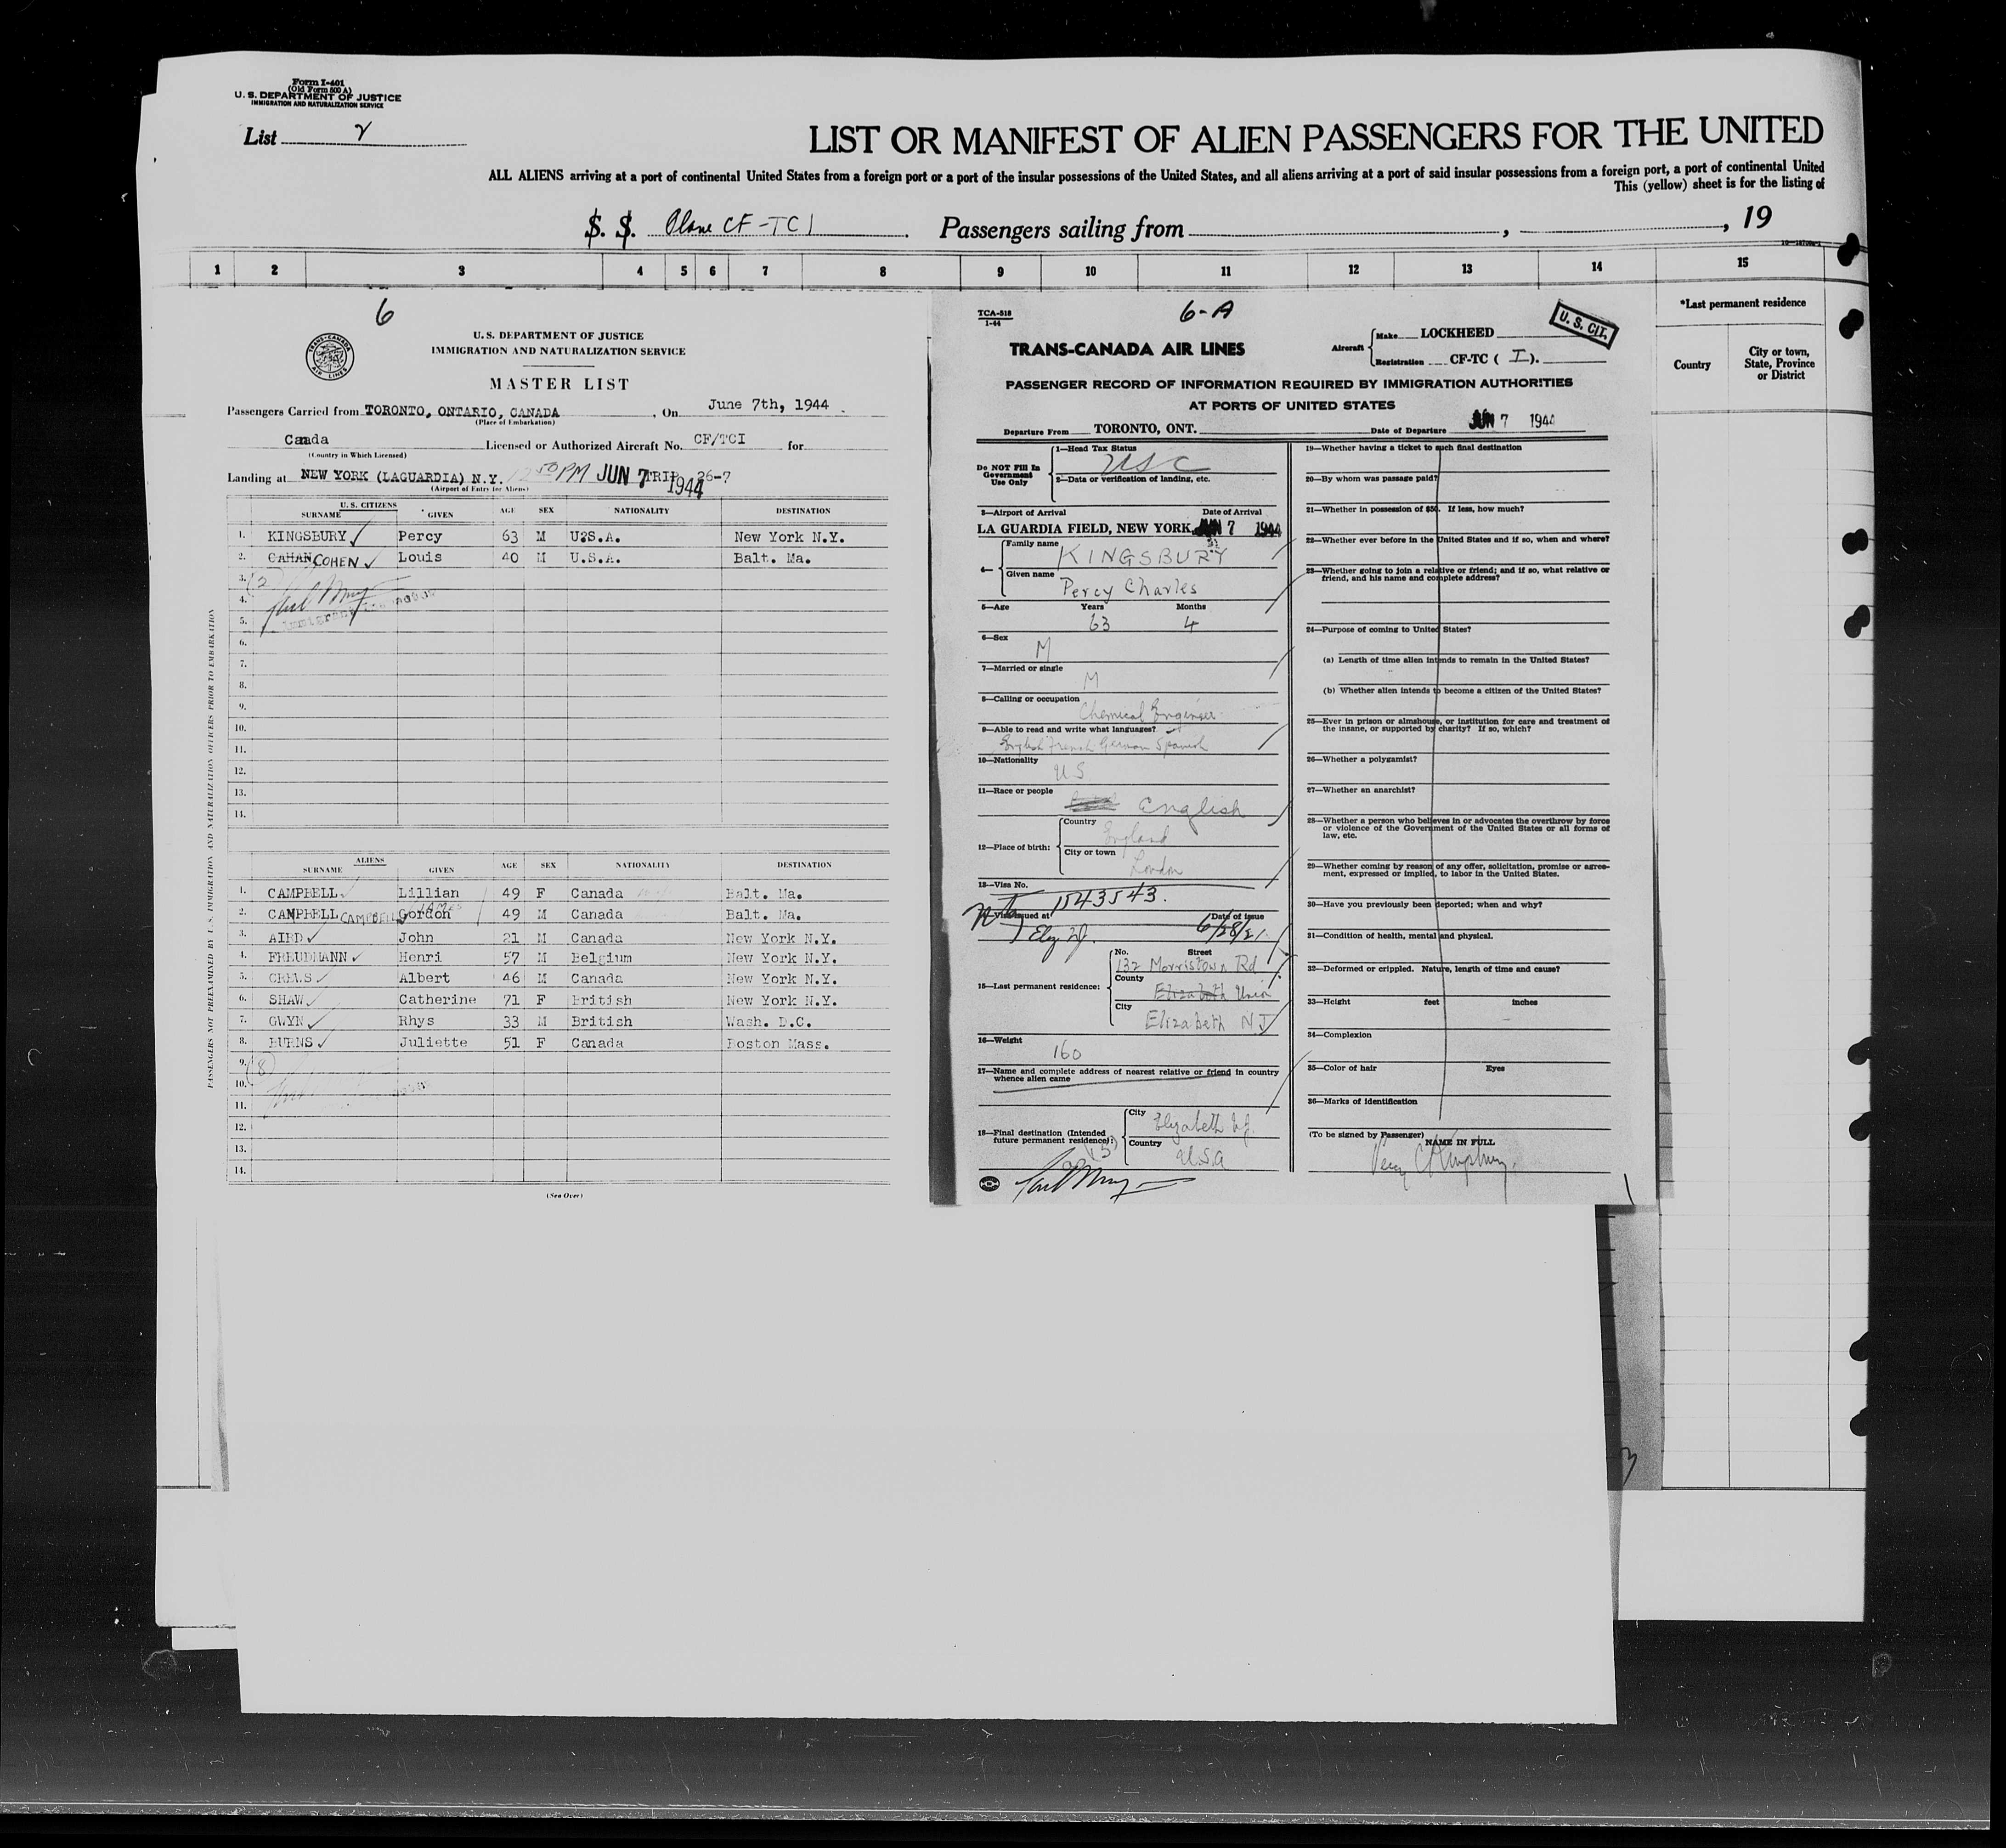 Form I-401
(Old Form 500 A)
U. S. DEPARTMENT OF JUSTICE
IMMIGRATION AND NATURALIZATION SERVICE
List 2
LIST OR MANIFEST OF ALIEN PASSENGERS FOR THE UNITED
ALL ALIENS arriving at a port of continental United States from a foreign port or a port of the insular possessions of the United States, and all aliens arriving at a port of said insular possessions from a foreign port, a port of continental United
This (yellow) sheet is for the listing of
S. S. Plane CF-TCI Passengers sailing from , , 19
1 2 3 4 5 6 7 8 9 10 11 12 13 14 15
*Last permanent residence
Country
City or town, State, Province or District
6
TRANS-CANADA AIR LINES
U.S. DEPARTMENT OF JUSTICE
IMMIGRATION AND NATURALIZATION SERVICE
MASTER LIST
Passengers Carried from TORONTO, ONTARIO, CANADA , On June 7th, 1944.
(Place of Embarkation)
Canada Licensed or Authorized Aircraft No. CF/TCI for
(Country in Which Licensed)
Landing at NEW YORK (LAGUARDIA) N.Y. 12 50 PM JUN 7 1944 TRIP 26-7
(Airport of Entry for Aliens)
PASSENGERS NOT PREEXAMINED BY U.S. IMMIGRATION AND NATURALIZATION OFFICERS PRIOR TO EMBARKATION
U.S. CITIZENS
SURNAME GIVEN AGE SEX NATIONALITY DESTINATION
1. KINGSBURY Percy 63 M U.S.A. New York N.Y.
2. CAHAN COHEN Louis 40 M U.S.A. Balt. Ma.
3. (2)
4.
5. Immigrant Inspector
6.
7.
8.
9.
10.
11.
12.
13.
14.
ALIENS
SURNAME GIVEN AGE SEX NATIONALITY DESTINATION
1. CAMPBELL Lillian 49 F Canada Balt. Ma.
2. CANPBELL CAMPBELL JAMES Gordon 49 M Canada Balt. Ma.
3. AIRD John 21 M Canada New York N.Y.
4. FREUDMANN Henri 57 M Belgium New York N.Y.
5. CREWS Albert 46 M Canada New York N.Y.
6. SHAW Catherine 71 F British New York N.Y.
7. GWYN Rhys 33 M British Wash. D.C.
8. BURNS Juliette 51 F Canada Boston Mass.
9. (8)
10.
11.
12.
13.
14.
(See Over)
TCA-518
1-44
6-A
U. S. CIT.
TRANS-CANADA AIR LINES
Aircraft
Make LOCKHEED
Registration CF-TC ( I ).
PASSENGER RECORD OF INFORMATION REQUIRED BY IMMIGRATION AUTHORITIES
AT PORTS OF UNITED STATES
Departure From TORONTO, ONT. Date of Departure JUN 7 1944
Do NOT Fill In
Government
Use Only
1—Head Tax Status
USC
2—Data or verification of landing, etc.
3—Airport of Arrival Date of Arrival
LA GUARDIA FIELD, NEW YORK JUN 7 1944
4—
Family name KINGSBURY
Given name Percy Charles
5—Age Years Months
63 4
6—Sex
M
7—Married or single
M
8—Calling or occupation
Chemical Engineer
9—Able to read and write what languages?
English French German Spanish
10—Nationality
US
11—Race or people
English
12—Place of birth:
Country
England
City or town
London
13—Visa No.
1543543.
14—Visa issued at Date of issue
Eliz NJ. 6/28/21
15—Last permanent residence:
No. Street
132 Morristown Rd
County
Elizabeth Union
City
Elizabeth NJ
16—Weight
160
17—Name and complete address of nearest relative or friend in country
whence alien came
18—Final destination (Intended
future permanent residence):
City Elizabeth NJ.
Country U.S.A
19—Whether having a ticket to such final destination
20—By whom was passage paid?
21—Whether in possession of $50. If less, how much?
22—Whether ever before in the United States and if so, when and where?
23—Whether going to join a relative or friend; and if so, what relative or
friend, and his name and complete address?
24—Purpose of coming to United States?
(a) Length of time alien intends to remain in the United States?
(b) Whether alien intends to become a citizen of the United States?
25—Ever in prison or almshouse, or institution for care and treatment of
the insane, or supported by charity? If so, which?
26—Whether a polygamist?
27—Whether an anarchist?
28—Whether a person who believes in or advocates the overthrow by force
or violence of the Government of the United States or all forms of
law, etc.
29—Whether coming by reason of any offer, solicitation, promise or agree-
ment, expressed or implied, to labor in the United States.
30—Have you previously been deported; when and why?
31—Condition of health, mental and physical.
32—Deformed or crippled. Nature, length of time and cause?
33—Height feet inches
34—Complexion
35—Color of hair Eyes
36—Marks of identification
(To be signed by Passenger)
NAME IN FULL
Percy C Kingsbury.